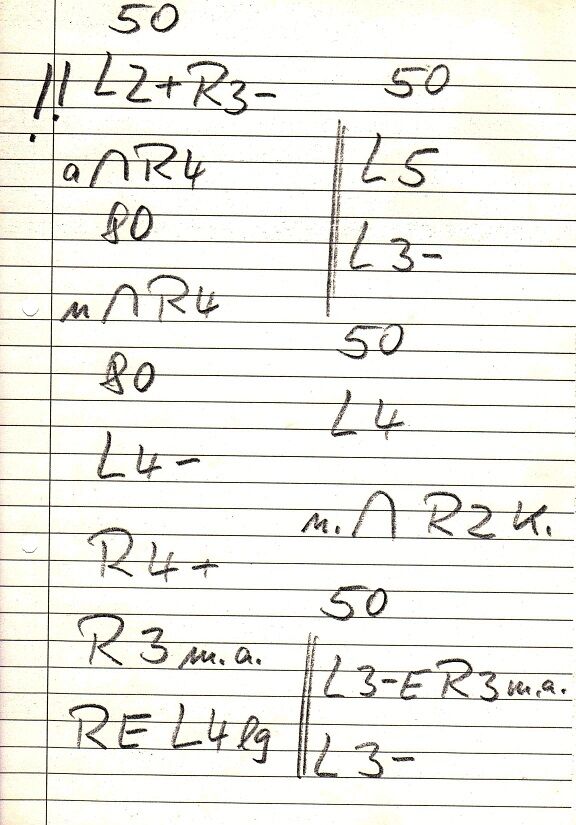 50
!! L2+R3-
a ∩ R4
80
n ∩ R4
80
L4-
R4+
R3 m.a.
RE L4 lg
50
L5
L3-
50
L4
n. ∩ R2 K.
50
L3-E R3 m.a.
L3-